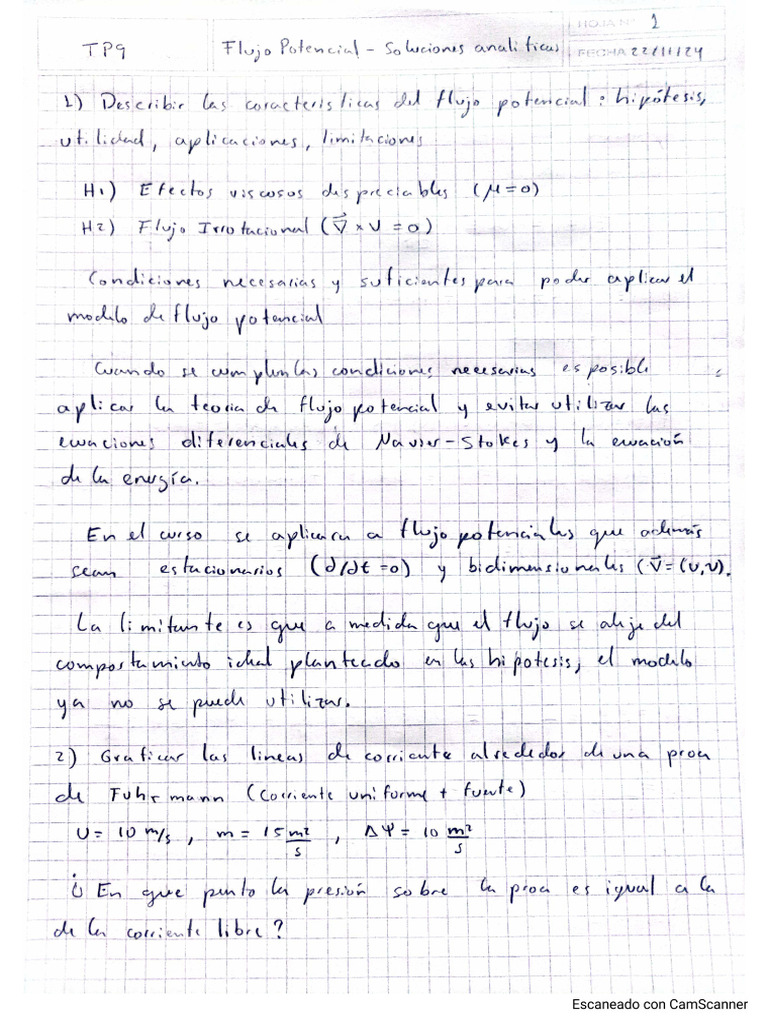 TP9
Flujo Potencial - Soluciones analiticas
HOJA Nº 1
FECHA 22/11/24
1) Describir las caracteristicas del flujo potencial: hipótesis,
utilidad, aplicaciones, limitaciones
H1) Efectos viscosos despreciables (μ=0)
H2) Flujo Irrotacional (∇⃗ × V = 0)
Condiciones necesarias y suficientes para poder aplicar el
modelo de flujo potencial
Cuando se cumplen las condiciones necesarias es posible
aplicar la teoria de flujo potencial y evitar utilizar las
ecuaciones diferenciales de Navier-Stokes y la ecuación
de la energía.
En el curso se aplicara a flujo potenciales que además
sean estacionarios (∂/∂t =0) y bidimensionales (V⃗ = (u,v).
La limitante es que a medida que el flujo se aleje del
comportamiento ideal planteado en las hipotesis, el modelo
ya no se puede utilizar.
2) Graficar las lineas de corriente alrededor de una proa
de Fuhrmann (corriente uniforme + fuente)
U = 10 m/s , m = 15 m²/s , ΔΨ = 10 m²/s
¿ En que punto la presión sobre la proa es igual a la
de la corriente libre?
Escaneado con CamScanner